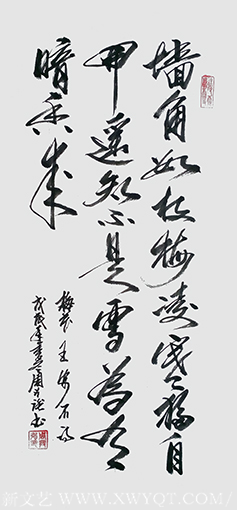 墙角数枝梅凌寒独自
开遥知不是雪為有
暗香来
梅花王安石诗
戊戌年
新文艺 WWW.XWYQT.COM